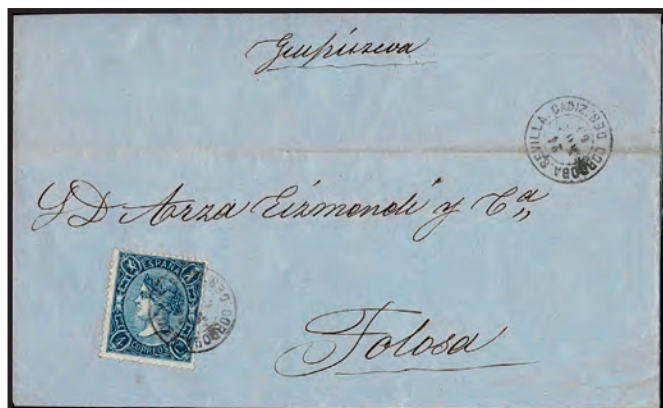 Guipúzcoa
CORDOBA. SEVILLA. CADIZ. DES.
S D Arza Eizmendi y Cª
ESPAÑA
CORREOS
Tolosa